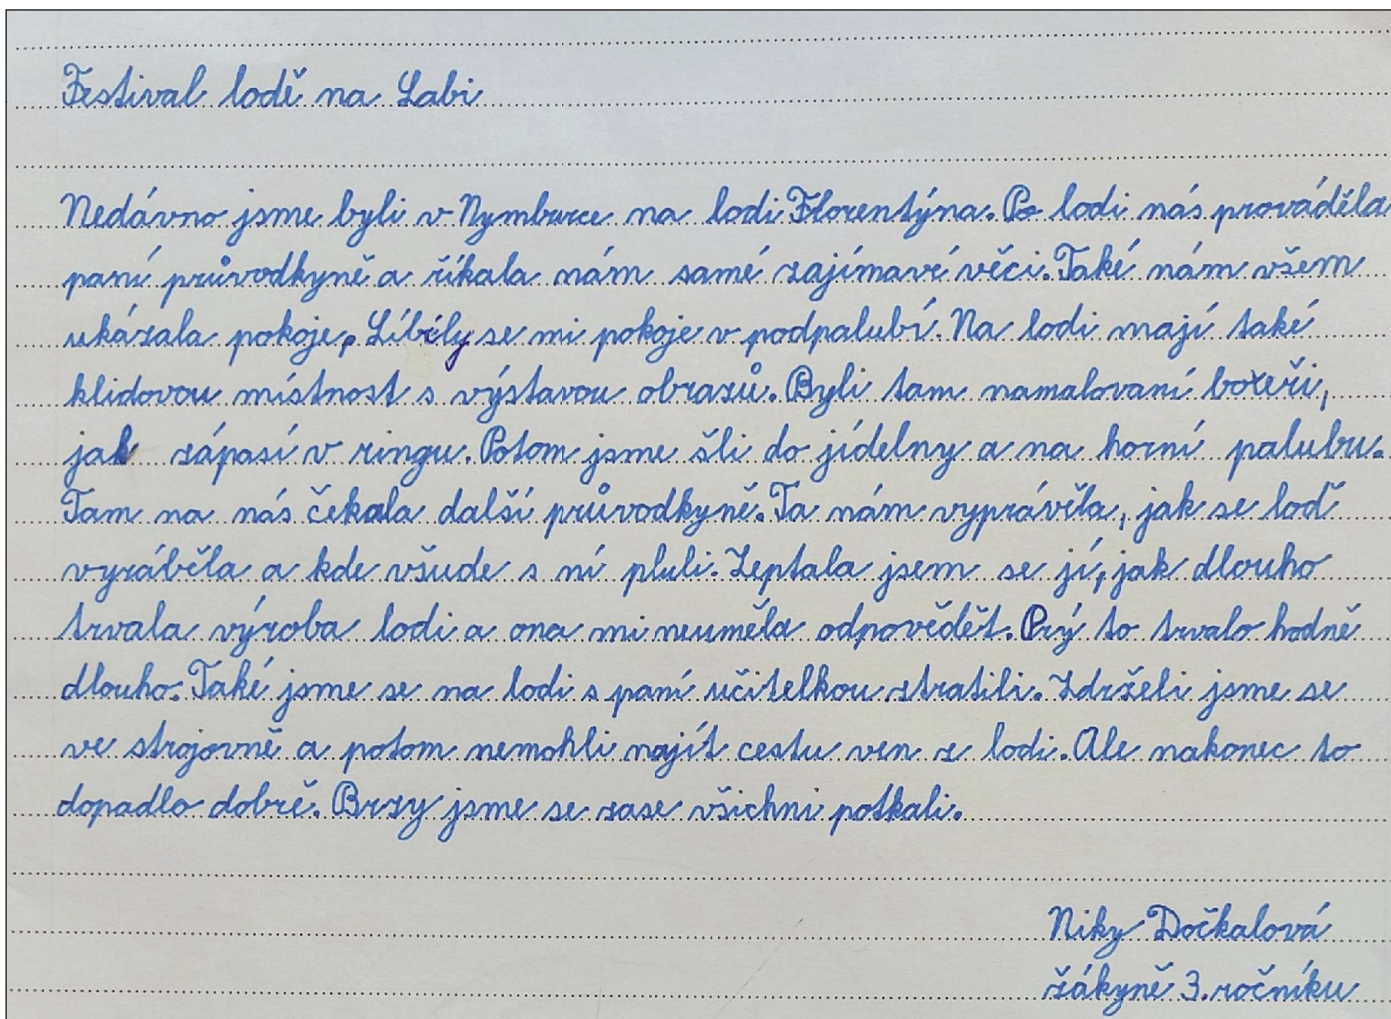 Festival lodě na Labi
Nedávno jsme byli v Nymburce na lodi Florentýna. Po lodi nás prováděla
paní průvodkyně a říkala nám samé zajímavé věci. Také nám všem
ukázala pokoje. Líbily se mi pokoje v podpalubí. Na lodi mají také
klidovou místnost s výstavou obrazů. Byli tam namalovaní boxeři,
jak zápasí v ringu. Potom jsme šli do jídelny a na horní palubu.
Tam na nás čekala další průvodkyně. Ta nám vyprávěla, jak se loď
vyráběla a kde všude s ní pluli. Zeptala jsem se jí, jak dlouho
trvala výroba lodi a ona mi neuměla odpovědět. Prý to trvalo hodně
dlouho. Také jsme se na lodi s paní učitelkou ztratili. Zdrželi jsme se
ve strojovně a potom nemohli najít cestu ven z lodi. Ale nakonec to
dopadlo dobře. Brzy jsme se zase všichni potkali.
Niky Dočkalová
žákyně 3. ročníku